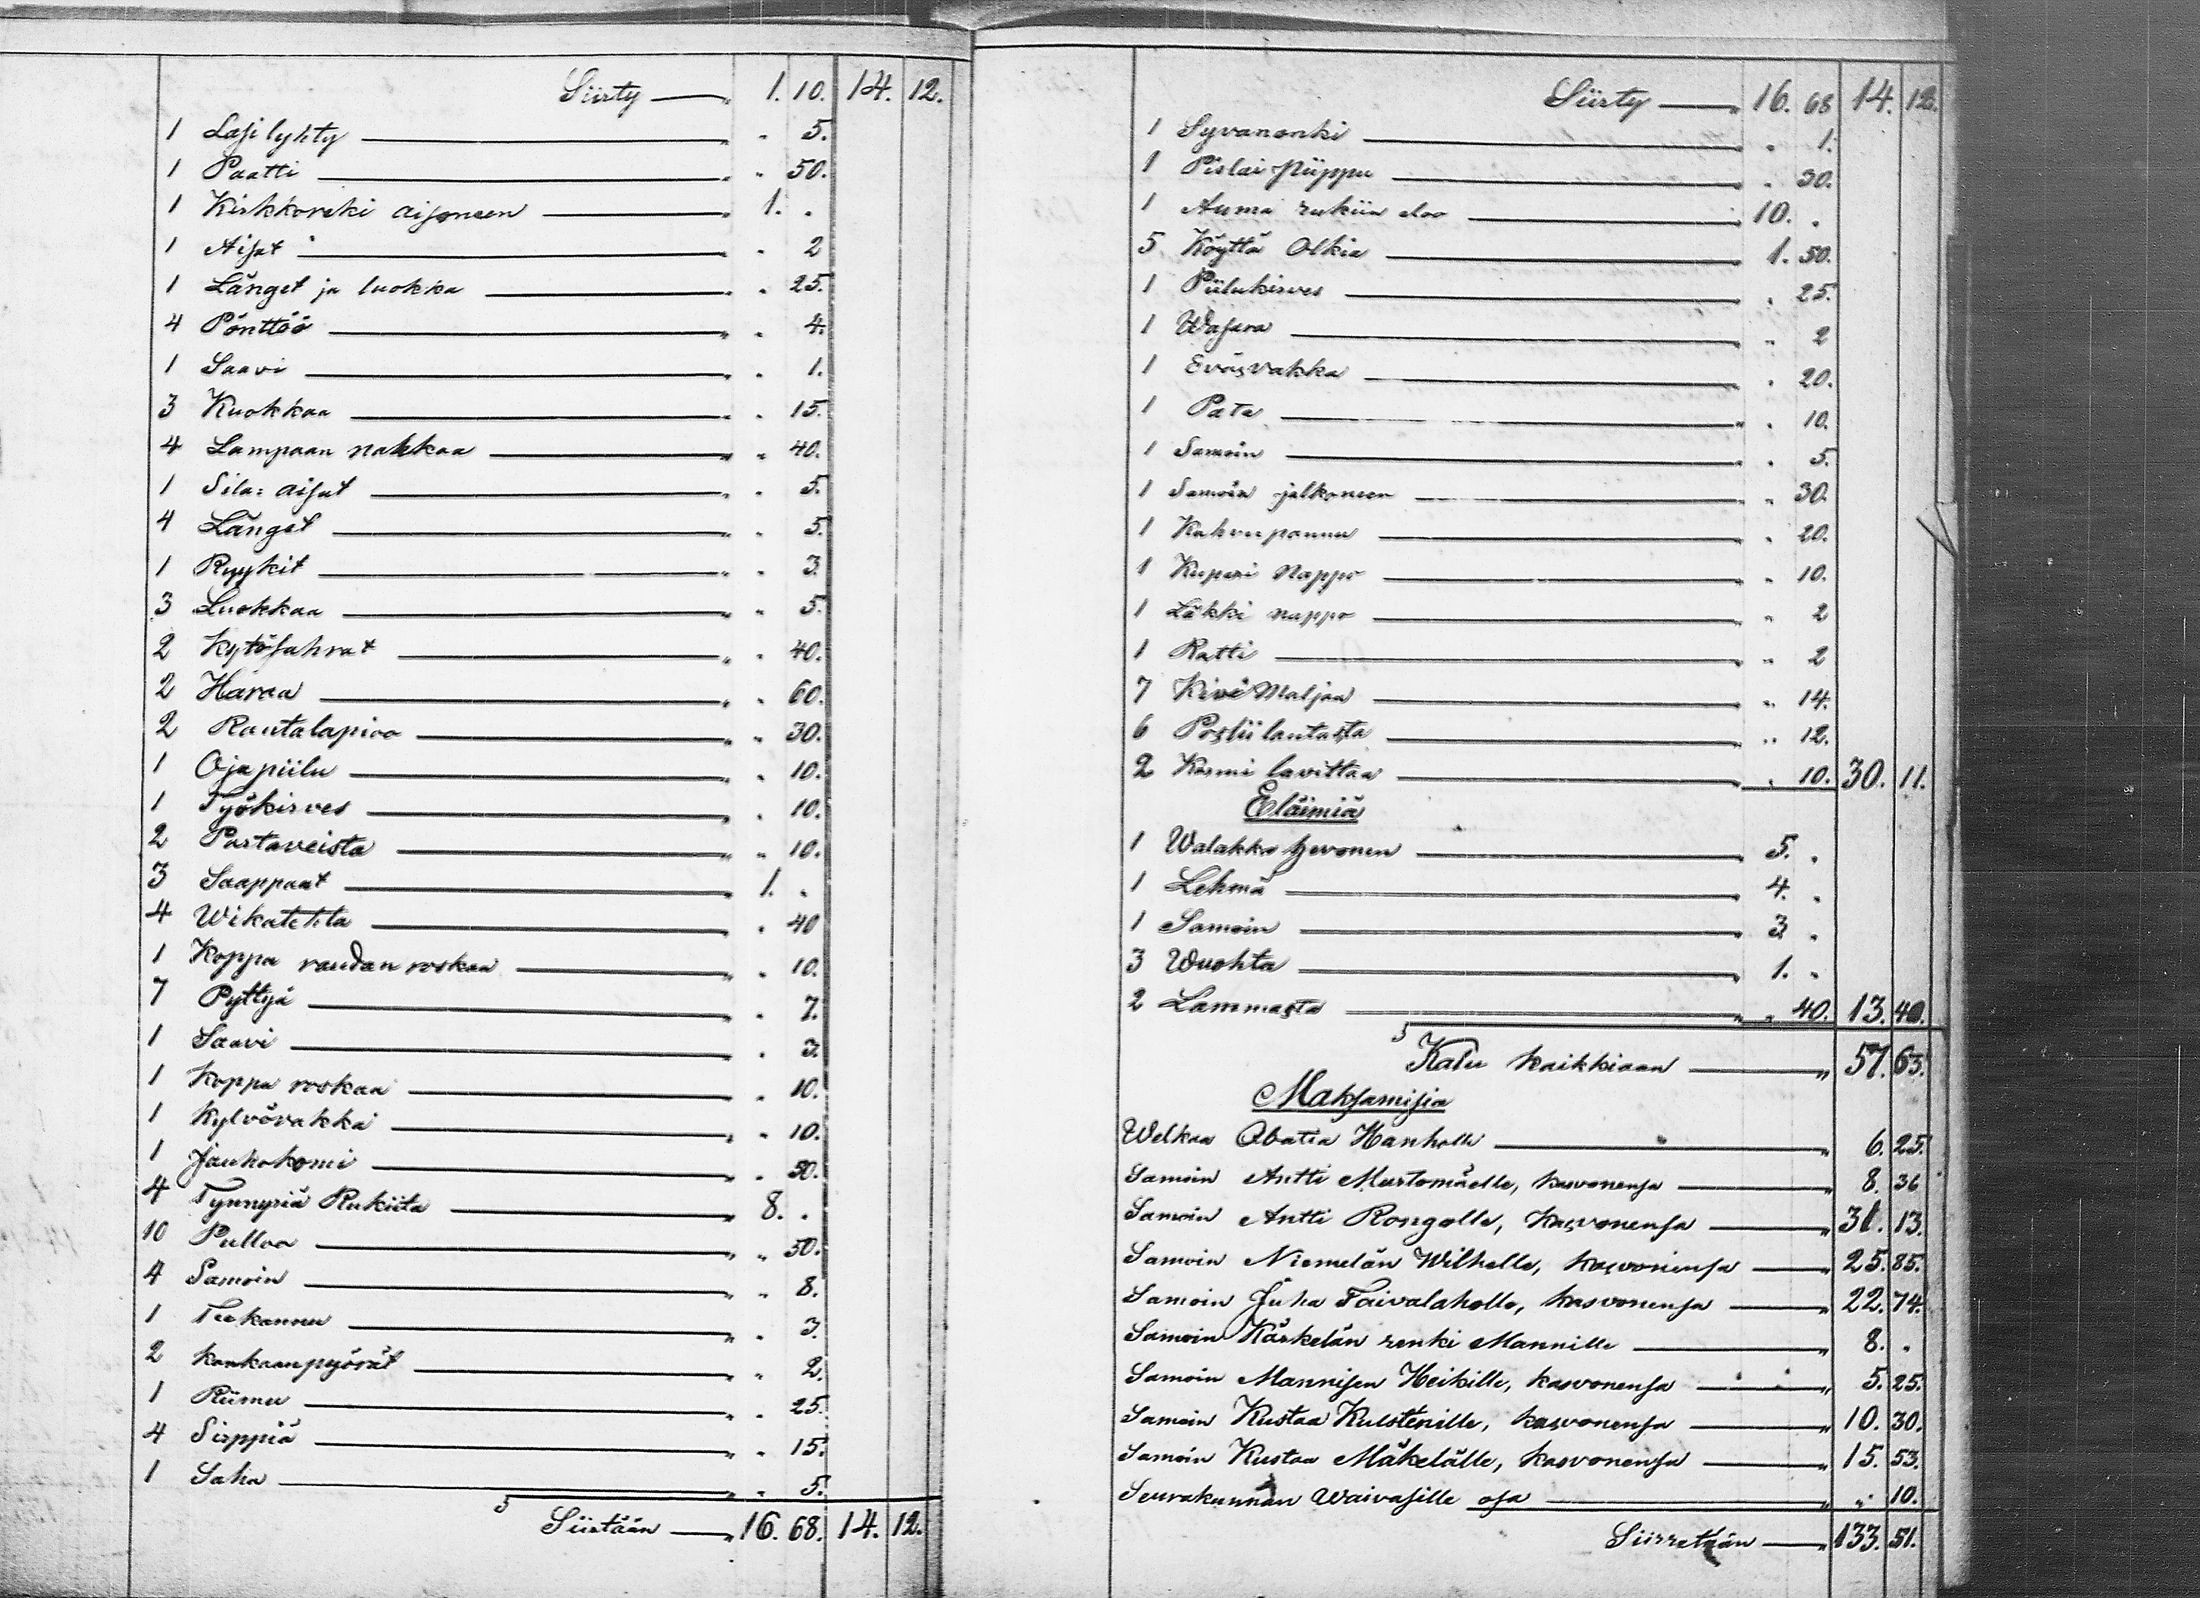 Siirty — " 1. 10. 14. 12.
1 Lasilyhty — " " 5.
1 Paatti — " " 50.
1 Kirkkoreki aisoneen — " 1. "
1 Aisat — " " 2
1 Länget ja luokka — " " 25.
4 Pönttöö — " " 4.
1 Saavi — " " 1.
3 Kuokkaa — " " 15.
4 Lampaan nahkaa — " " 40.
1 Sila: aisat — " " 5.
4 Länget — " " 5.
1 Ryykit — " " 3.
3 Luokkaa — " " 5.
2 Kytösahrat — " " 40.
2 Haraa — " " 60.
2 Rautalapioo — " " 30.
1 Ojapiilu — " " 10.
1 Työkirves — " " 10.
2 Partaveista — " " 10.
3 Saappaat — " 1. "
4 Wikatehta — " " 40
1 Koppa raudan roskaa — " " 10.
7 Pyttyä — " " 7.
1 Saavi — " " 3.
1 Koppa roskaa — " " 10.
1 Kylvövakka — " " 10.
1 Jauhokomi — " " 50.
4 Tynnyriä Rukiita — " 8. "
10 Pulloo — " " 50.
4 Samoin — " " 8.
1 Teekannu — " " 3.
2 kankaanpyörät — " " 2.
1 Riimu — " " 25.
4 Sirppiä — " " 15.
1 Saha — " " 5.
Siirtään — " 16. 68. 14. 12.
Siirty — " 16. 68 14. 12.
1 Syvanonki — " " 1.
1 Pislai piippu — " " 30.
1 Auma rukiin eloo — " 10. "
5 Köyttä Olkia — " 1. 50.
1 Piilukirves — " " 25.
1 Wasara — " " 2
1 Eväsvakka — " " 20.
1 Pata — " " 10.
1 Samoin — " " 5.
1 Samoin jalkoneen — " " 30.
1 Kahvipannu — " " 20.
1 Kupari Nappo — " " 10.
1 Läkki nappo — " " 2
1 Ratti — " " 2
7 Kivi Maljaa — " " 14.
6 Posliilautasta — " " 12.
2 Karmi lavittaa — " " 10. 30. 11.
Eläimiä
1 Walakko hevonen — " 5. "
1 Lehmä — " 4. "
1 Samoin — " 3 "
3 Wuohta — " 1. "
2 Lammasta — " " 40. 13. 40.
Kalu kaikkiaan — " 57. 63.
Maksamisia
Welkaa Abatia Hanholle — " 6. 25.
Samoin Antti Murtomäelle, kasvonensa — " 8. 36
Samoin Antti Rongolle, kasvonensa — " 31. 13.
Samoin Niemelän Wilhelle, kasvonensa — " 25. 85.
Samoin Juha Taivalaholle, kasvonensa — " 22. 74.
Samoin Kärkelän renki Mannille — " 8. "
Samoin Mannisen Heikille, kasvonensa — " 5. 25.
Samoin Kustaa Kulstenille, kasvonensa — " 10. 30.
Samoin Kustaa Mäkelälle, kasvonensa — " 15. 53.
Seurakunnan Waivasille osa — " " 10.
Siirretään — " 133. 51.